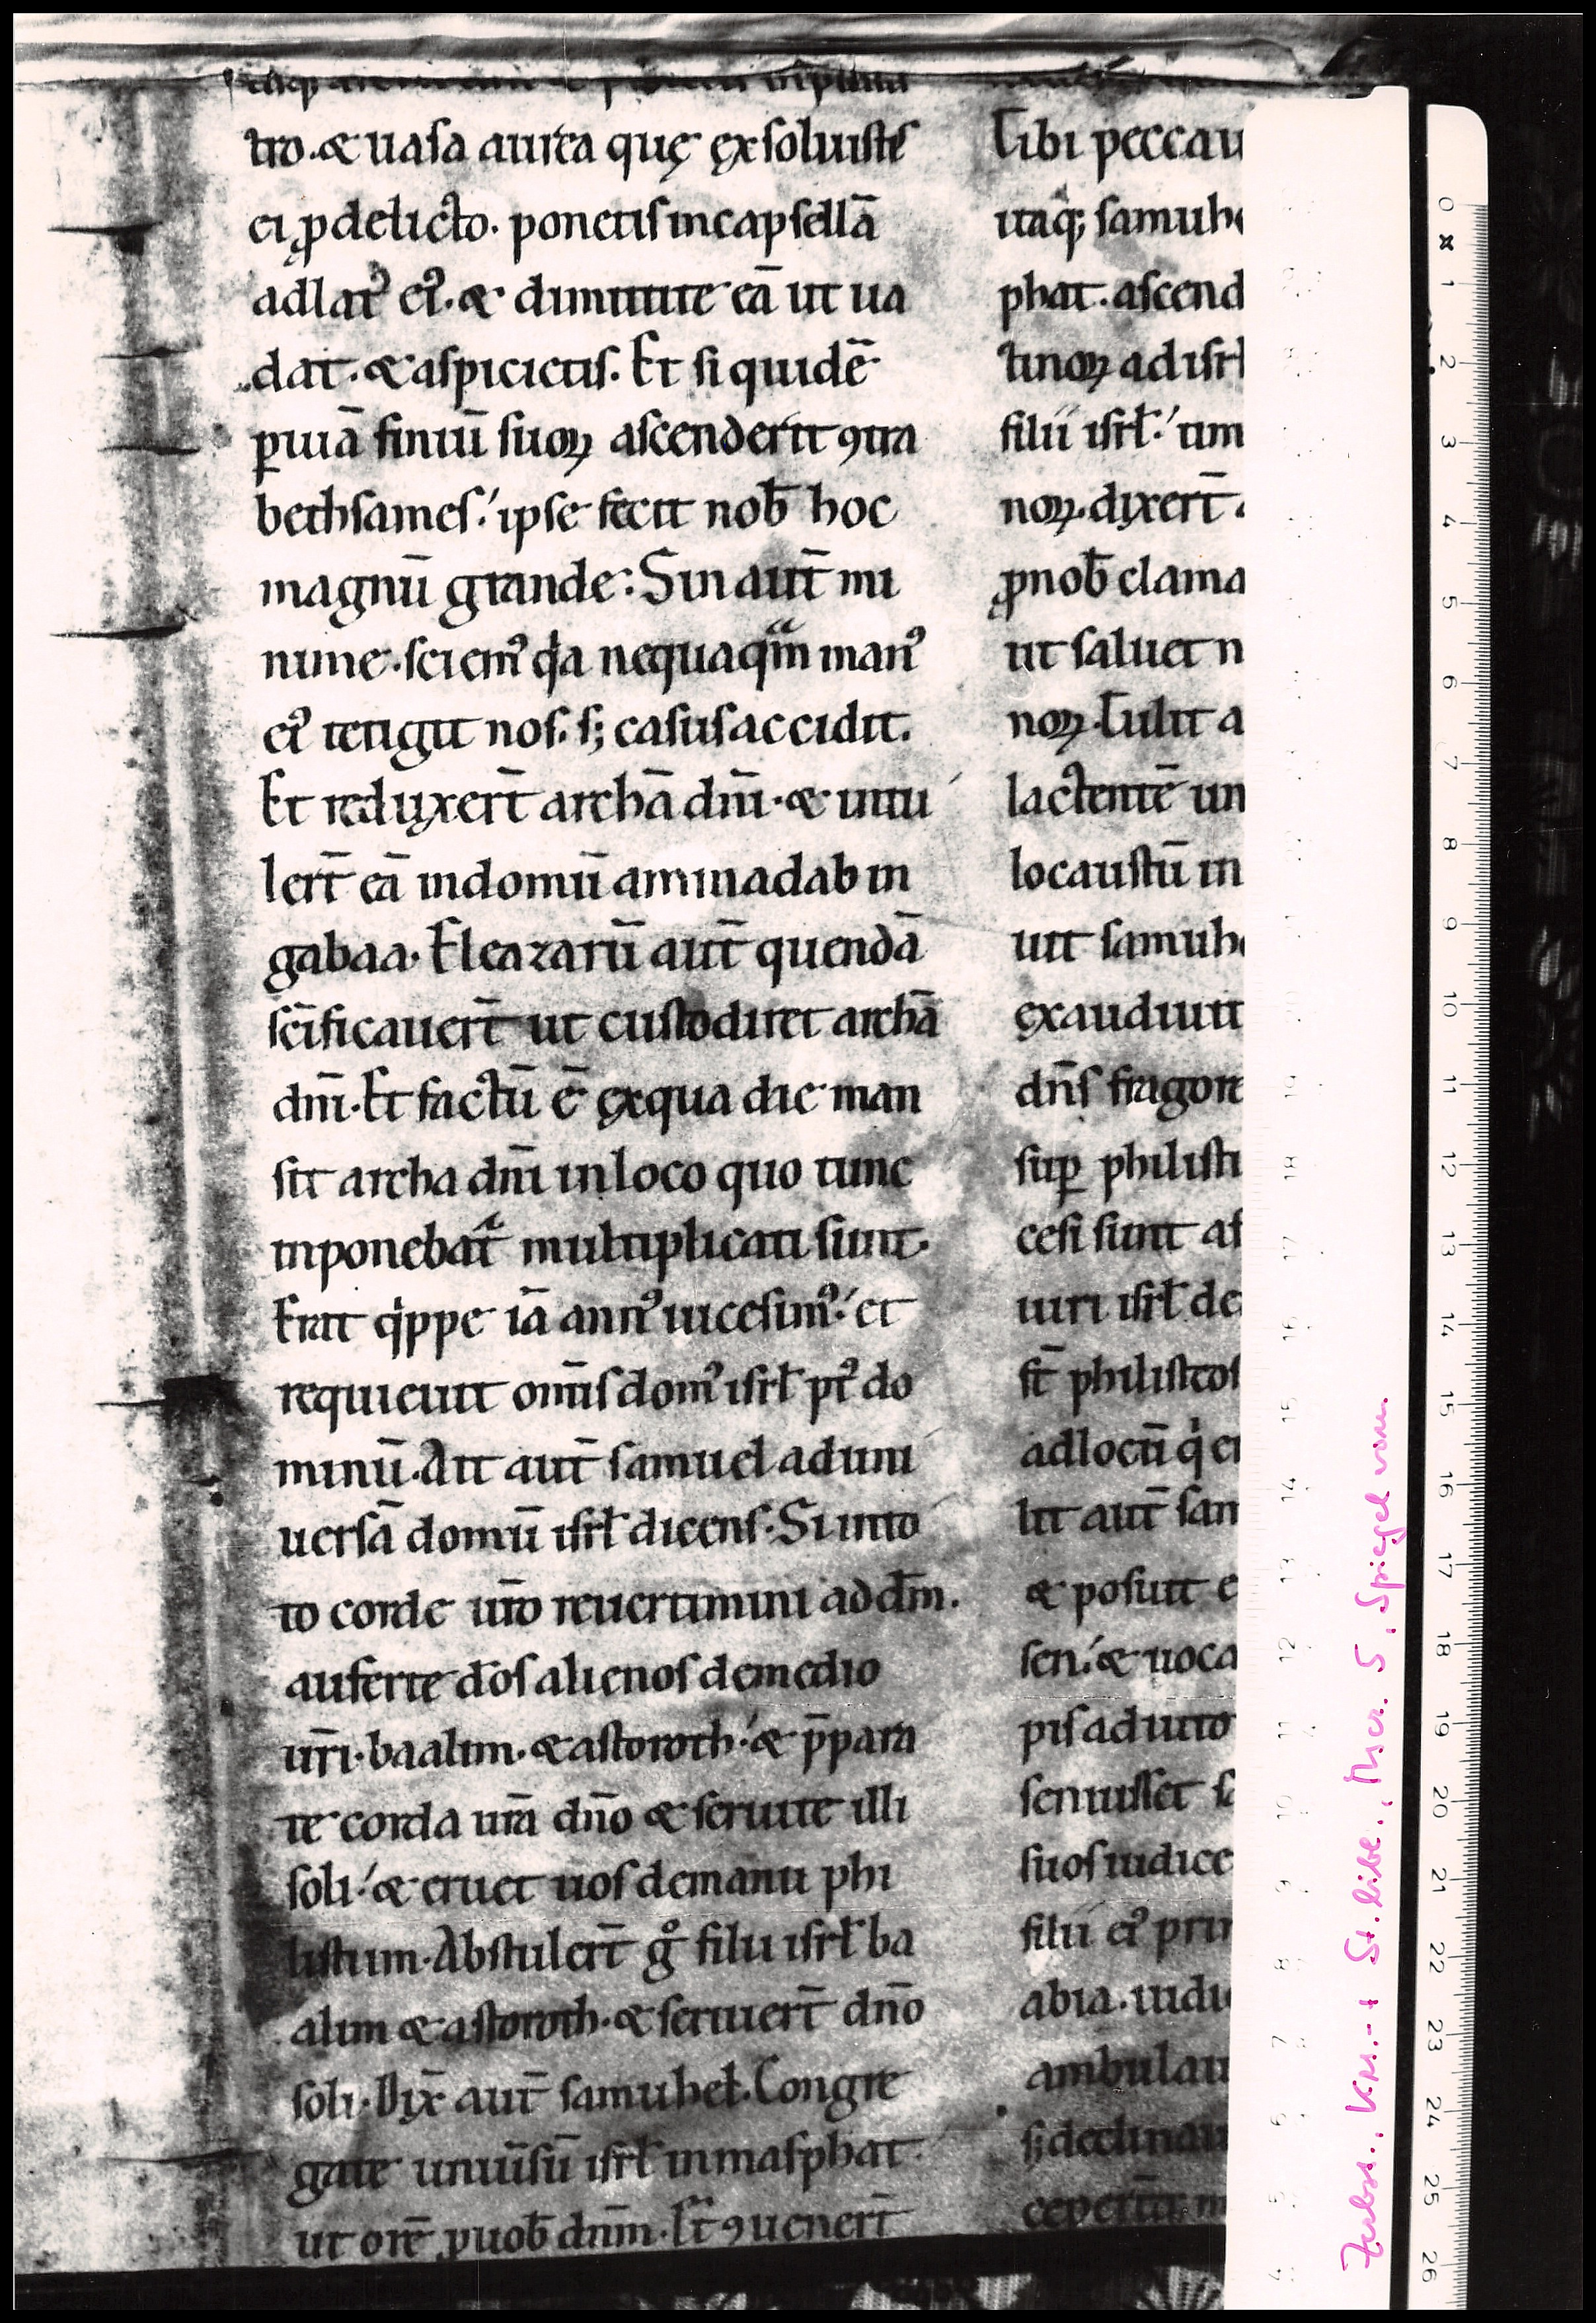 tro. & uasa aurea quę exsoluistis
ei ꝓ delicto. ponetis in capsellā
ad latꝰ eiꝰ. & dimittite eā ut ua
dat. & aspicietis. Et si quidē
ꝑ uiā finiū suoꝝ ascenderit ꝯtra
bethsames. ipse fecit nob̄ hoc
magnū grande: Sin aut̄ mi
nime. sciemꝰ qia nequaqm manꝰ
eiꝰ tetigit nos. s; casus accidit.
Et reduxert̄ archā dn̄i. & intu
lert̄ eā in domū aminadab in
gabaa. Eleazarū aut̄ quendā
sc̄ificauert̄ ut custodiret archā
dn̄i. Et factū ē ex qua die man
sit archa dn̄i in loco quo tunc
inponebat᷑ multiplicati sunt.
Erat qippe iā annꝰ uicesimꝰ. et
requieuit om̄is domꝰ isrł pꝰt do
minū. Ait aut̄ samuel ad uni
uersā domū isrł dicens. Si in to
to corde ur̄o reuertimini ad dm̄.
auferte d̄os alienos de medio
ur̄i. baalim. & astoroth. & p̄para
te corda ur̄a dn̄o & seruite illi
soli. & eruet uos de manu phi
listiim. Abstulert̄ gͦ filii isrł ba
alim & astoroth. & seruiert̄ dn̄o
soli. Dix̄ aut̄ samuhel. Congre
gate uniūsū isrł in masphat.
ut orē ꝓ uob̄ dnm̄. Et ꝯuenert̄
Tibi peccau
itaq; samuhe
phat. ascend
tinoꝝ ad isrł
filii isrł. tim
noꝝ. dixert̄
ꝓ nob̄ clama
ut saluet n
noꝝ. Tulit a
lactentē un
locaustū in
uit samuhe
exaudiuit
dn̄s fragore
suꝑ philisti
cesi sunt a f
uiri isrł de
st̄ philisteos
ad locū qi er
lit aut̄ sam
& posuit e
sen. & uoca
pis adiuto
senuisset sa
suos iudice
filii eiꝰ prim
abia. iudi
ambulau
s; declinau
ceperun m
Mscr. 5, Spiegel vorn.
0
1
2
3
4
5
6
7
8
9
10
11
12
13
14
15
16
17
18
19
20
21
22
23
24
25
26